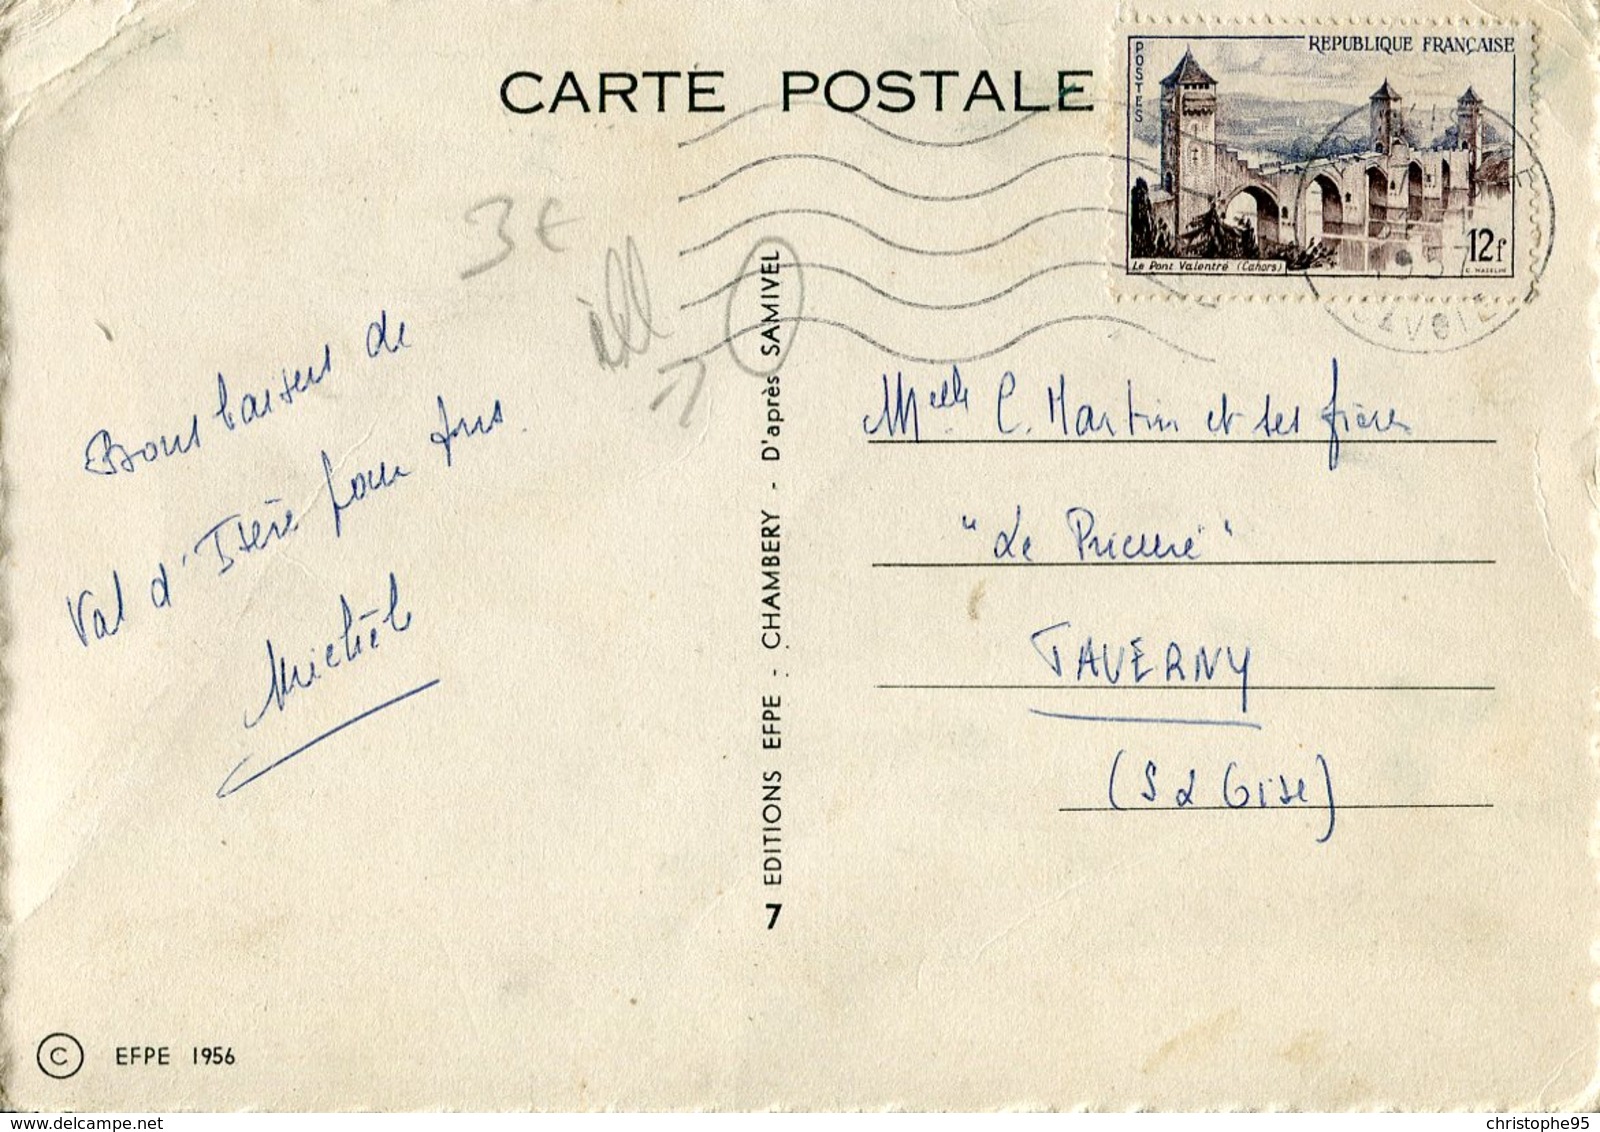 CARTE POSTALE
REPUBLIQUE FRANÇAISE
POSTES
12f
Le Pont Valentré (Cahors)
C. MAZELIN
SAVOIE
3 €
ill
Bons baisers de
Val d'Isère pour tous.
Michèle
7 EDITIONS EFPE - CHAMBERY - D'après SAMIVEL
Melle C. Martin et ses frères
"Le Prieuré"
TAVERNY
(S & Oise)
© EFPE 1956
delcampe.net
christophe95